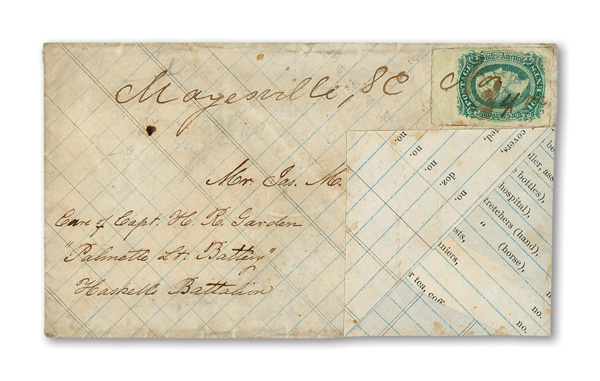 Mayesville, SC
Mr. Jas. M.
Care of Capt. H. R. Garden
"Palmetto Lt. Battery"
Haskells Battalion
no.
no.
doz
no.
no.
covers,
bottles),
hospital),
stretchers (hand),
" (horse),
r tea, coff
no.
no.